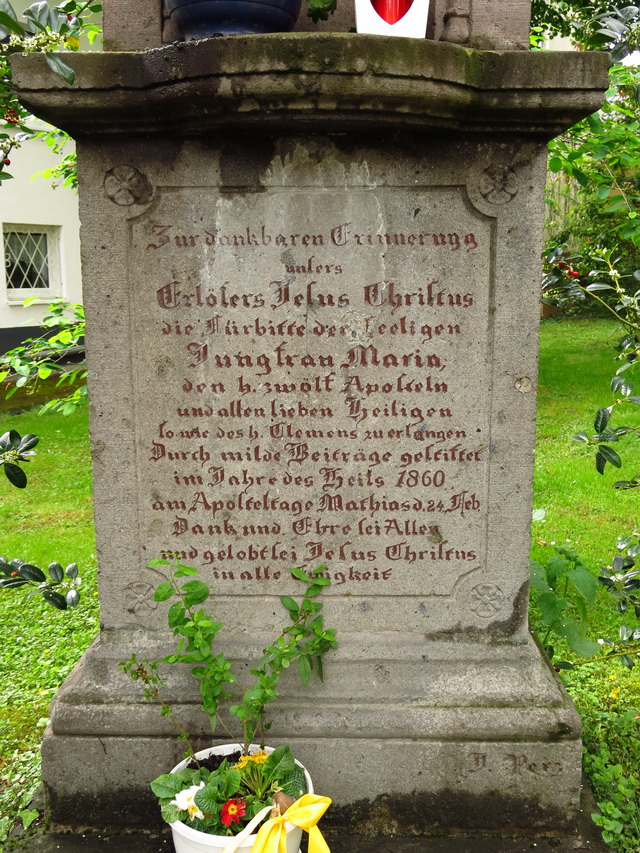 Zur dankbaren Erinnerung
unsers
Erlösers Jesus Christus
die Fürbitte der seeligen
Jungfrau Maria,
den h. zwölf Aposteln
und allen lieben Heiligen
so wie des h. Clemens zu erlangen
Durch milde Beiträge gestiftet
im Jahre des Heils 1860.
am Aposteltage Mathias d. 24. Feb.
Dank und Ehre sei Allen
und gelobt sei Jesus Christus
in alle Ewigkeit